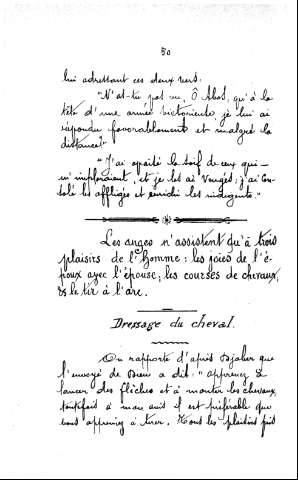 50
lui adressant ces deux vers:
"N'as-tu pas vu, Ô Abos, qu'à la
tête d'une armée victorieuse je lui ai
répondu favorablement et malgré la
distance?"
"J'ai apaisé la soif de ceux qui
m'imploraient, et je les ai vengés; j'ai con-
solé les affligés et enrichi les indigents."
Les anges n'assistent qu'à trois
plaisirs de l'homme: les joies de l'é-
poux avec l'épouse, les courses de chevaux,
& le tir à l'arc.
Dressage du cheval.
On rapporte d'après Djaber que
l'envoyé de Dieu a dit: "apprenez à
lancer des flèches et à monter les chevaux,
toutefois à mon avis il est préférable que
vous appreniez à tirer. Tous les plaisirs